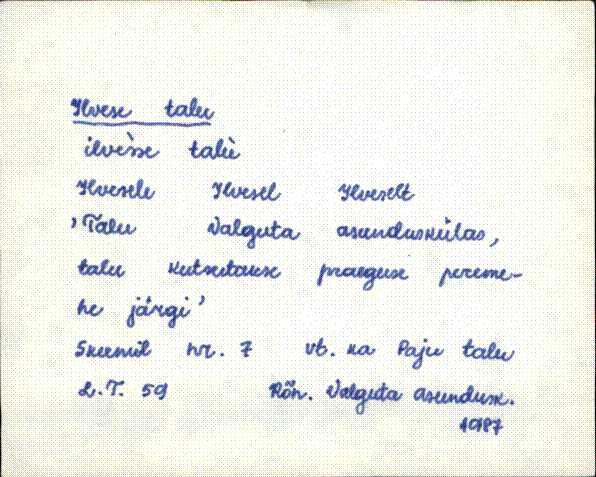 Ilvese talu
ilvèsse talù
Ilvesele Ilvesel Ilveselt
'Talu Valguta asunduskülas,
talu kutsutakse praeguse pereme-
he järgi'
Skeemil nr. 7 vt. ka Paju talu
L.T. 59 Rõn. Valguta asundusk.
1987